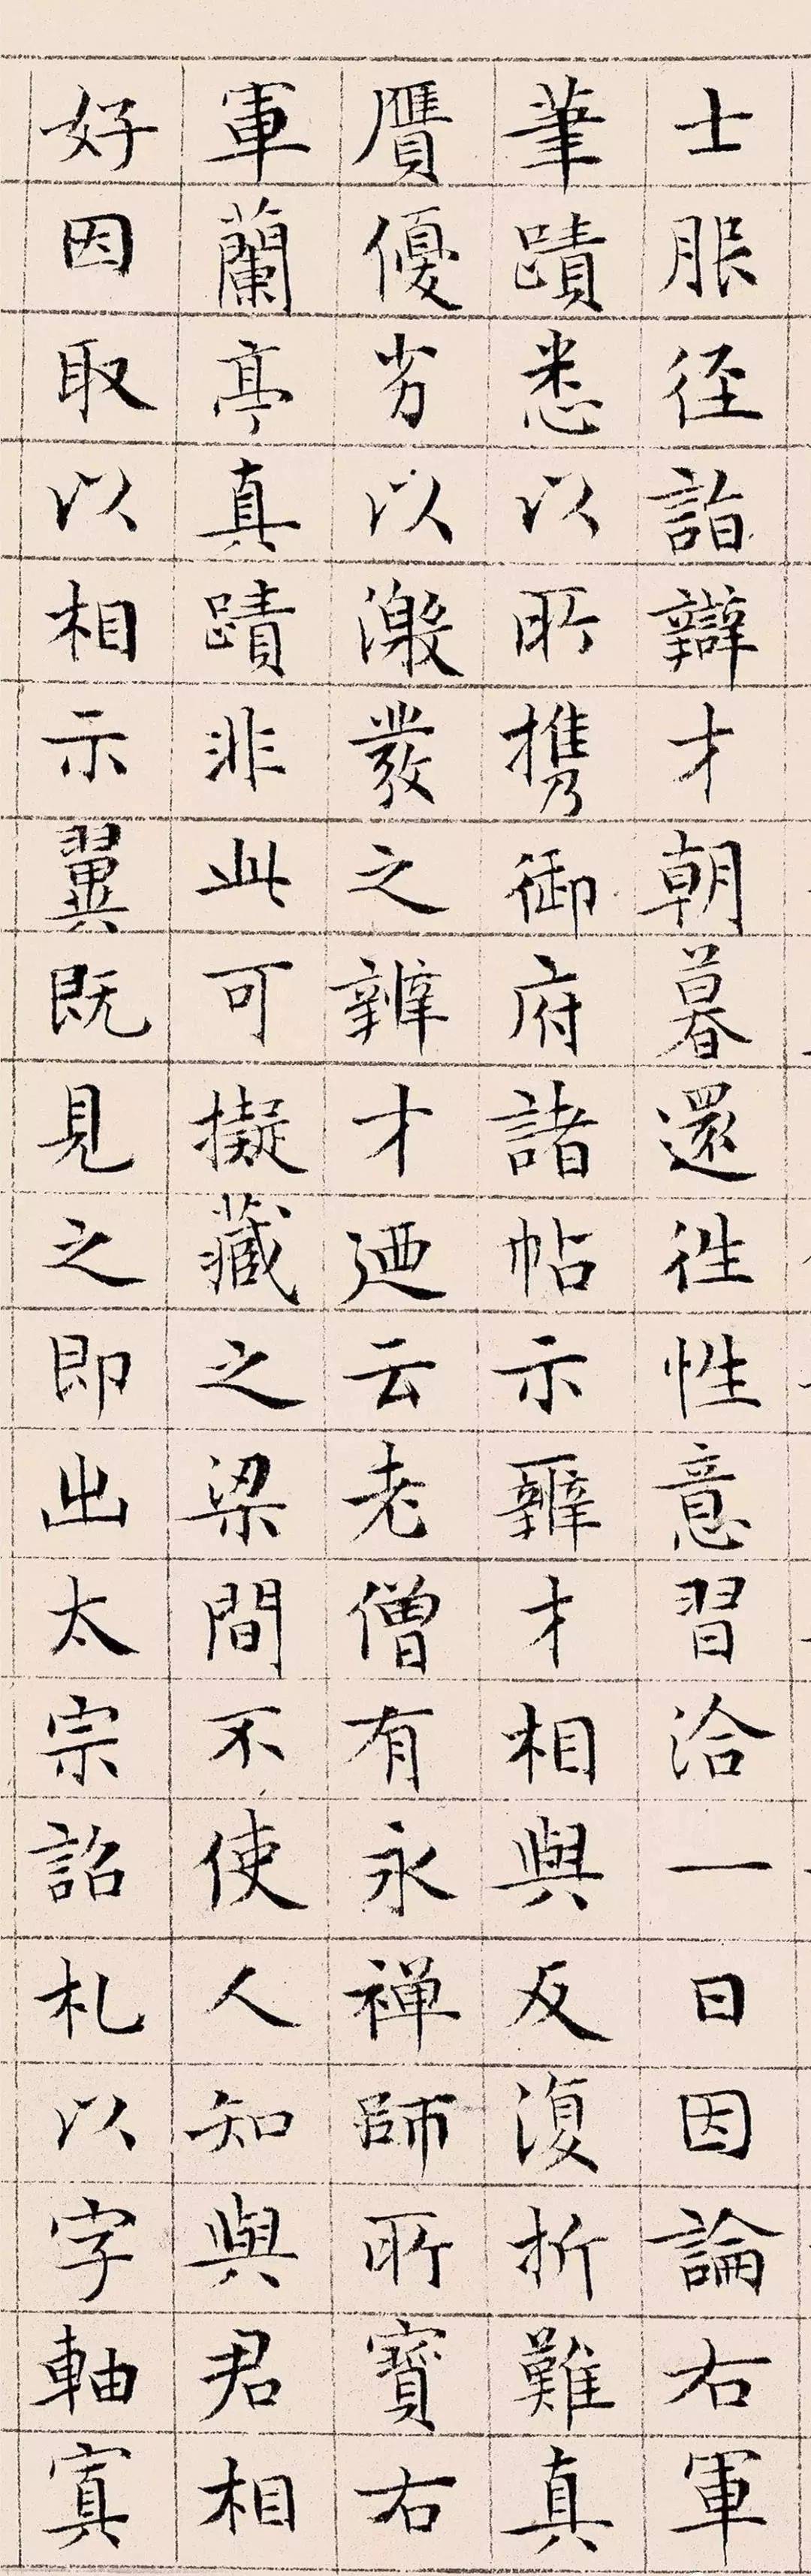 士服徑詣辯才朝暮還往性意習洽一日因論右軍
筆蹟悉以所攜御府諸帖示辨才相與反復折難真
贗優劣以激發之辨才迺云老僧有永禪師所寶右
軍蘭亭真蹟非此可擬藏之梁間不使人知與君相
好因取以相示翼既見之即出太宗詔札以字軸寘